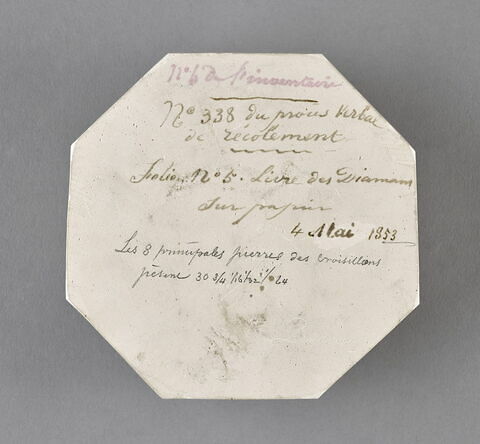 N° 6 de l'inventaire
N° 338 du procès Verbal
de récolement
Folio N° 5. Livre des Diamans
sur papier
4 Mai 1853
Les 8 principales pierres des croisillons
pèsent 30 3/4 1/16 1/32